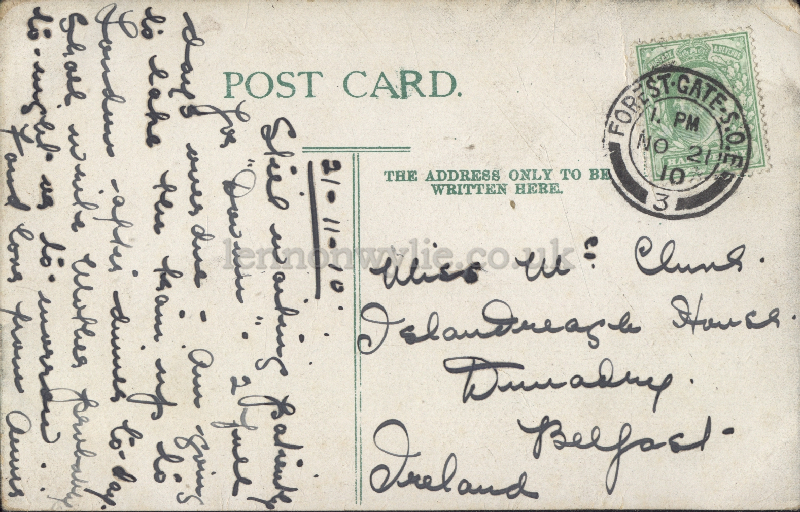 POST CARD.
THE ADDRESS ONLY TO BE
WRITTEN HERE.
FOREST-GATE-S.O.E
1. PM
NO 21
10
3
HA
21-11-10.
Still waiting patiently
for "Devon" - 2 full
days overdue - Am going
to take the train up to
London after dinner to-day.
Shall write Mother probably
to-night or to-morrow.
Fond love from
Miss Mc Clung.
Islandreagh House.
Dunadry.
Belfast
Ireland
lennonwylie.co.uk